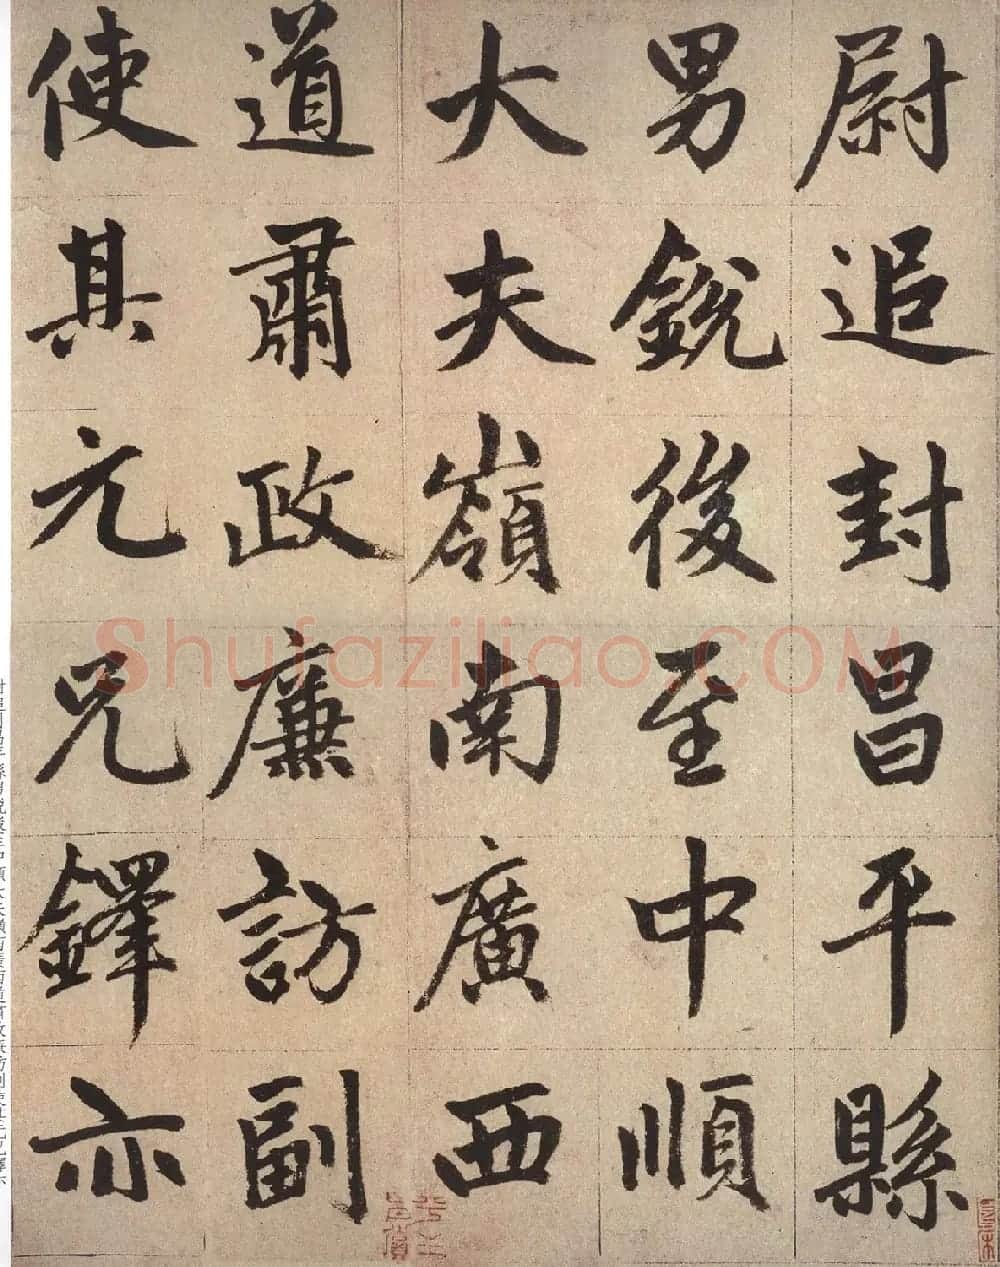 尉追封昌平縣
男銳後至中順
大夫嶺南廣西
道肅政廉訪副
使其元兄鐸亦
Shufaziliao.COM